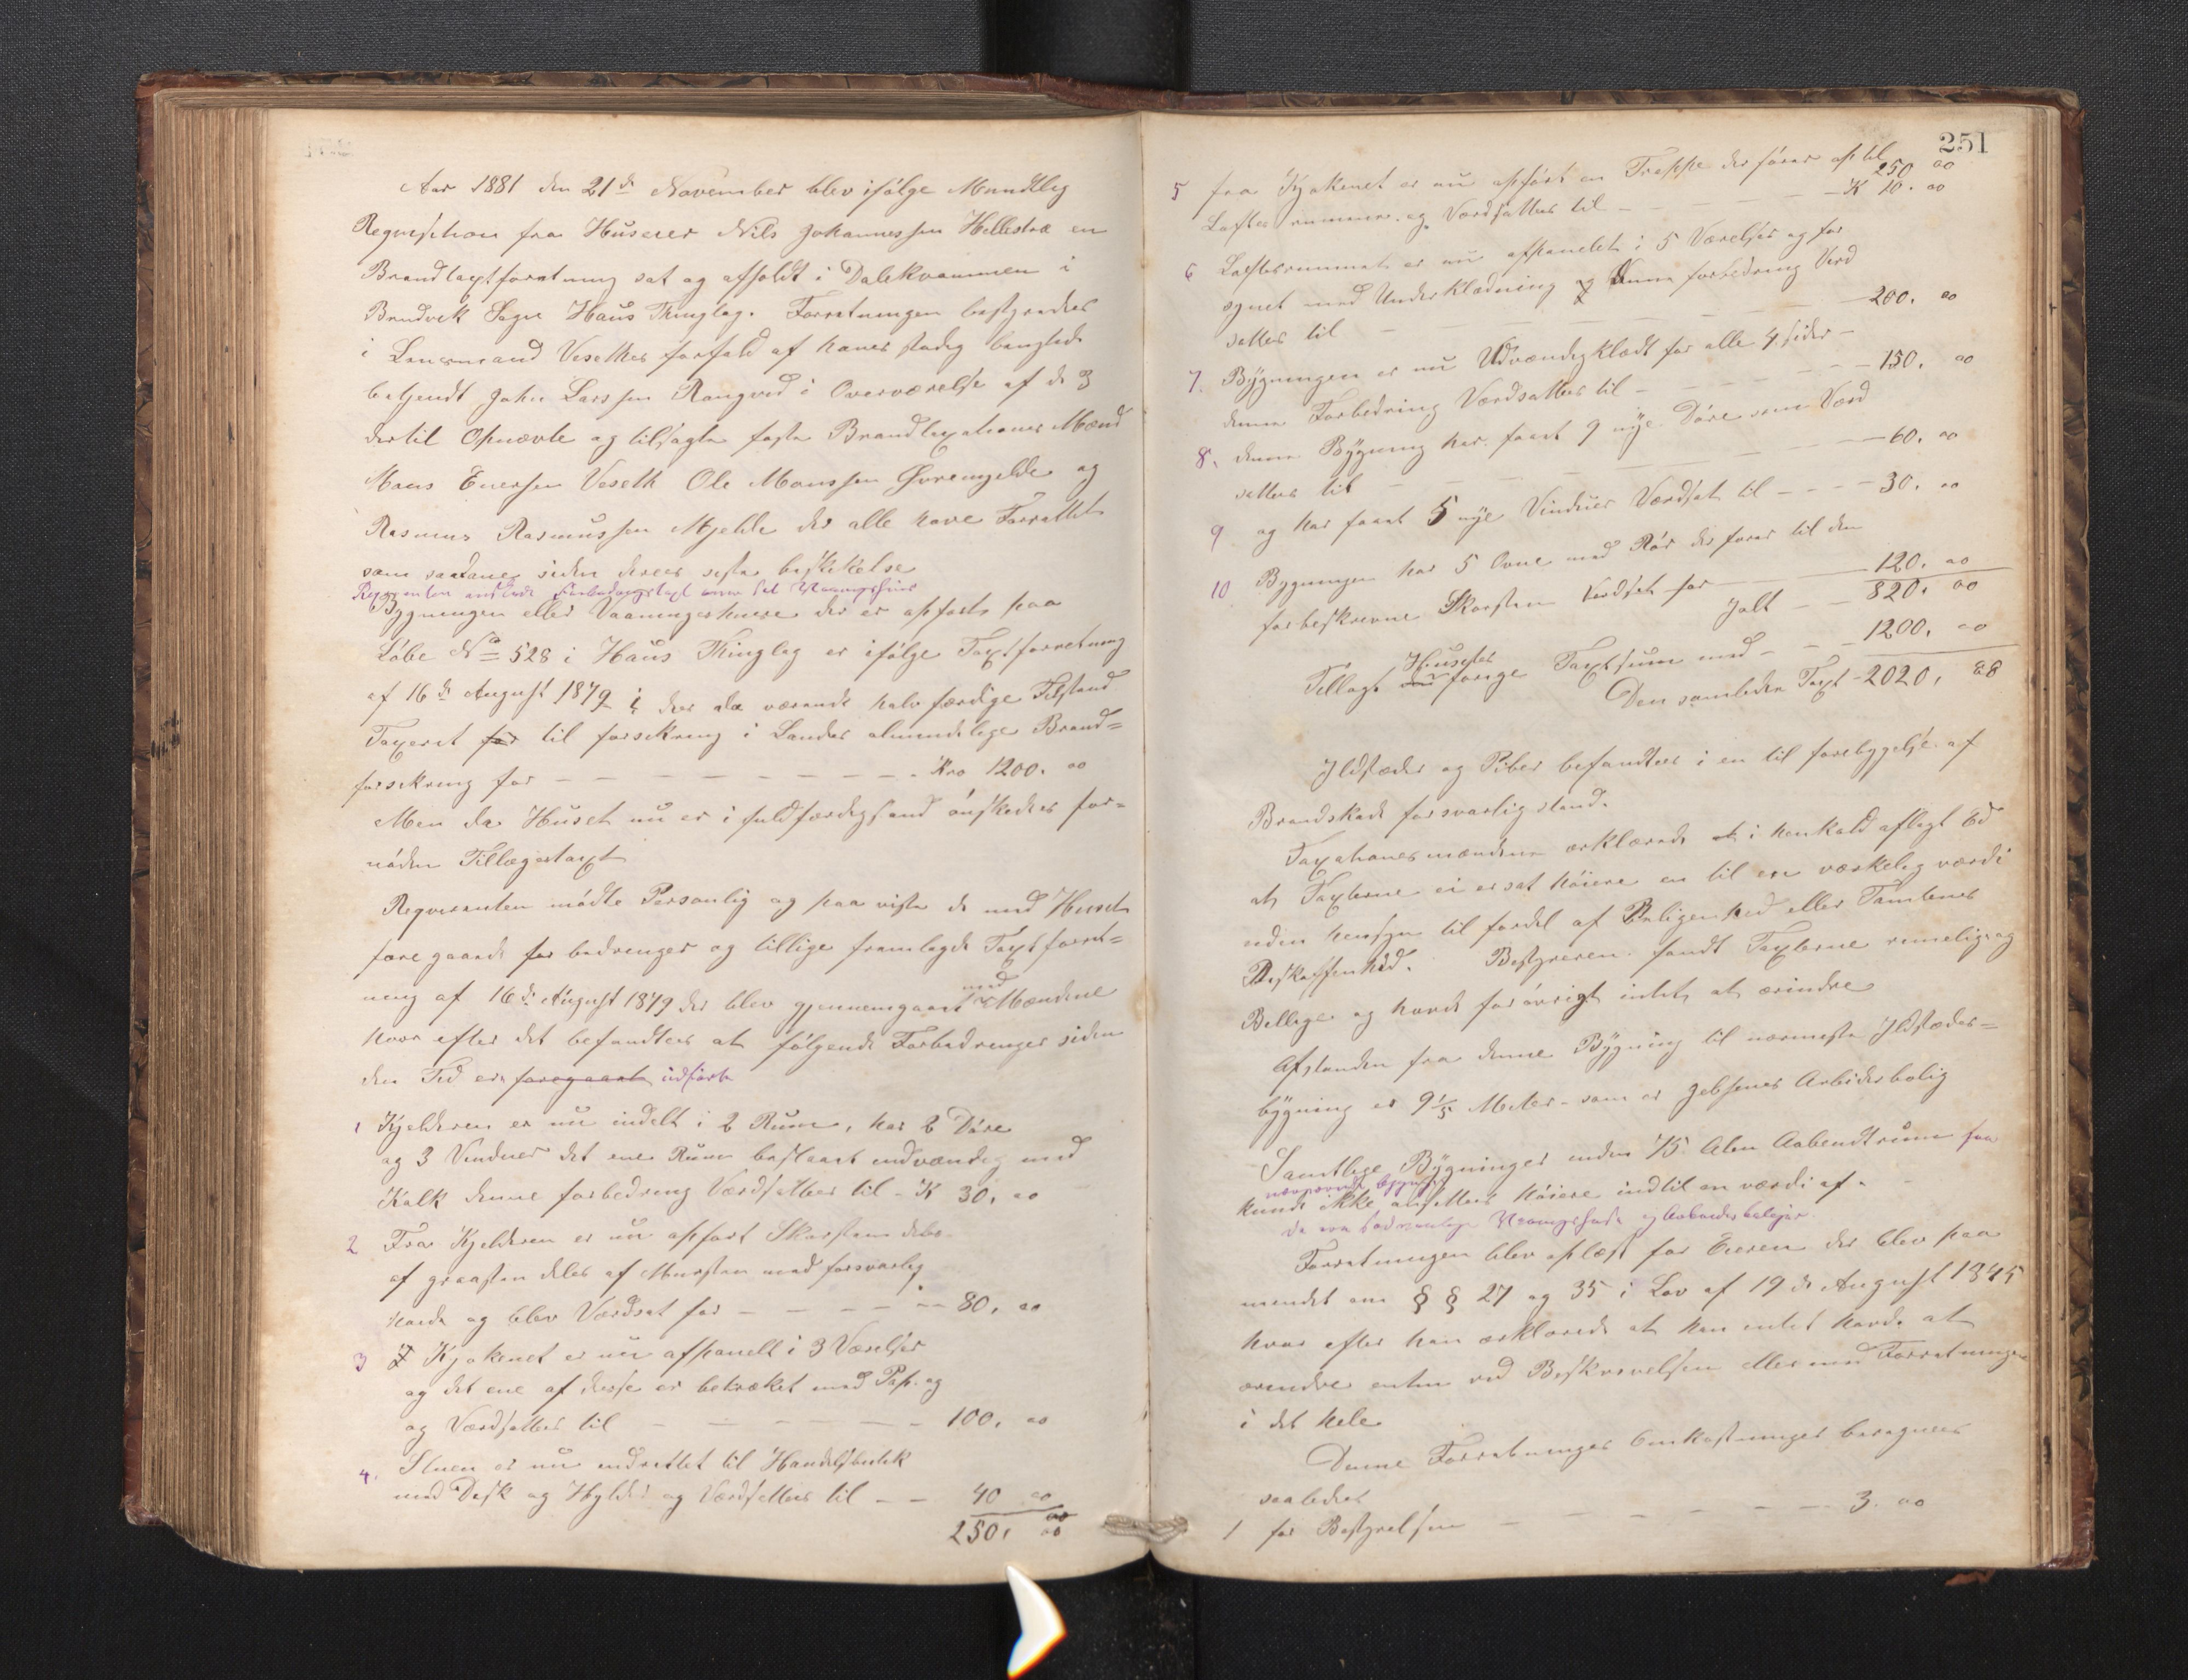 Aar 1881 den 21de November blev ifölge Mundtlig
Reqvisition fra Huseier Nils Johannessen Hellestræ en
Brandtaxtforretning sat og afholdt i Dalekvammen i
Brudvik Sogn Haus Thinglag. Forretningen bestyredes
i Lensmand Veseths forfald af hans stadig
betjendt John Larssen Rongved i Overværelse af de 3
dertil Opnævte og tilsagte faste Brandtaxations Mænd
Mons Eversen Veseth Ole Monssen Øvremjelde og
Rasmus Rasmussen Mjelde der alle have Forrettet
som saadane siden deres siste beskikelse
Bygningen eller Vaaningshuse der er opfört paa
Löbe No 528 i Haus Thinglag er ifölge Taxtforretning
af 16de August 1879 i der da værende halv færdige Tilstand
Taxeret for til forsikring i Landets almindelige Brand=
forsikring for - - - - - - - - - Kro 1200. 00
Men da Huset nu er i fuldfærdig stand önskedes for=
nöden Tillægstaxt
Reqvirenten mödte Personlig og paa viste de med Huset
fore gaaede for bedringer og tillige fremlagde Taxtforret=
ning af 16de August 1879 der blev gjennemgaaet med Mændene
hvor efter det befandtes at fölgende Forbedringer siden
den Tid er foregaaet udfört
1 Kjelderen er nu indelt i 2 Rum, har 2 Döre
og 3 Vinduer det ene Rum beslaaet indvændig med
Kalk denne forbedring Værdsættes til - K 30. 00
2 Fra Kjelderen er nu opfört Skorsten dels
af graasten dels af Mursten med forsvarlig
og blev Værdsat for - - - - - - 80. 00
3 Kjøkenet er nu afpanelt i 3 Værelser
og det ene af disse er betrækket med Pap. og
og Værdsættes til - - - - - - 100. 00
4. Stuen er nu indrettet til Handelsbutik
med Disk og Hylder og Værdsættes til - - 40 00
250. 00
251
250 00
5 fra Kjøkenet er nu opfört en Trappe der förer op til
Loftesrummer og Værdsættes til - - - - - K 10. 00
6 Loftesrummet er nu afpanelet i 5 Værelser og for
synet med Underklædning og denne forbedring Verd
sættes til - - - - - - - 200. 00
7. Bygningen er nu Udvændig klædt for alle 4 sider -
denne Forbedring Værdsættes til - - - - - - 150. 00
8. denne Bygning har faaet 9 nye Döre som Værd
sættes til - - - - - - - 60. 00
9 og har faaet 5 nye Vinduer Værdsat til - - - - 30. 00
10 Bygningen har 5 Ovne med Rör der förer til den
forbeskrevne Skorsten Verdsat for - - 120. 00
Jalt - - 820. 00
Tillagt Husets forrige Taxtsum med - - - 1200. 00
Den samledes Taxt - 2020, 00
Jldstæder og Piber befandtes i en til forebygelse af
Brandskade forsvarlig stand.
Taxationsmændene erklærede at i henhold aflagt Ed
at Taxterne ei er sat höiere en til en værkelig værdi
uden hensyn til fordel af Beligenhed eller Tomtenes
Beskaffenhed. Bestyreren fandt Taxterne rimelig og
Billige og havde forövrigt intet at erindre
Afstanden fra denne Bygning til nærmeste Jldstædes=
bygning er 9 1/5 Meter - som er Jebsens Arbeiderbolig
Samtlige Bygninger inden 75 Alen Aabendtrum fra
nærværende Bygning
kunde ikke ansættes höiere indtil en værdi af.
Forretningen blev oplæst for Eieren der blev paa
mindet om § § 27 og 35 i Lov af 19de August 1845
hvor efter han erklærede at han intet havde at
erindre enten ved Beskrivelsen eller med Forretningen
i det hele
Denne Forretninges Omkostninger beregnes
saaledes
1 for Bestyrelsen - - - - - - 3. 00